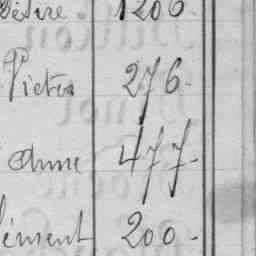 Désiré 1206.
Pieter 276.
Anne 477.
lément 200.